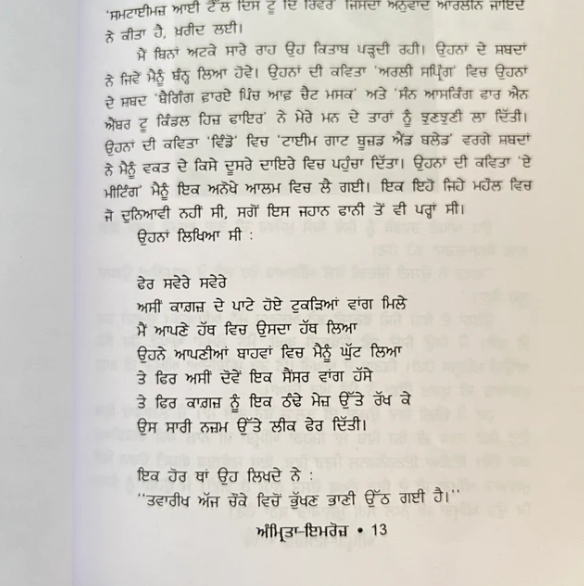 'ਸਮਟਾਈਮਜ਼ ਆਈ ਟੈੱਲ ਦਿਸ ਟੂ ਦਿ ਰਿਵਰ' ਜਿਸਦਾ ਅਨੁਵਾਦ ਆਰਲੀਨ ਜ਼ਾਇਦ
ਨੇ ਕੀਤਾ ਹੈ, ਖ਼ਰੀਦ ਲਈ।
ਮੈਂ ਬਿਨਾਂ ਅਟਕੇ ਸਾਰੇ ਰਾਹ ਉਹ ਕਿਤਾਬ ਪੜ੍ਹਦੀ ਰਹੀ। ਉਹਨਾਂ ਦੇ ਸ਼ਬਦਾਂ
ਨੇ ਜਿਵੇਂ ਮੈਨੂੰ ਬੰਨ੍ਹ ਲਿਆ ਹੋਵੇ। ਉਹਨਾਂ ਦੀ ਕਵਿਤਾ 'ਅਰਲੀ ਸਪ੍ਰਿੰਗ' ਵਿਚ ਉਹਨਾਂ
ਦੇ ਸ਼ਬਦ 'ਬੈਗਿੰਗ ਫ਼ਾਰਏ ਪਿੰਚ ਆਫ਼ ਵੈਟ ਮਸਕ' ਅਤੇ 'ਸੱਨ ਆਸਕਿੰਗ ਫਾਰ ਐਨ
ਐਂਬਰ ਟੂ ਕਿੰਡਲ ਹਿਜ਼ ਫਾਇਰ' ਨੇ ਮੇਰੇ ਮਨ ਦੇ ਤਾਰਾਂ ਨੂੰ ਝੁਣਝੁਣੀ ਲਾ ਦਿੱਤੀ।
ਉਹਨਾਂ ਦੀ ਕਵਿਤਾ 'ਵਿੰਡੋ' ਵਿਚ 'ਟਾਈਮ ਗਾਟ ਬੂਜ਼ਡ ਐਂਡ ਬਲੇਡ' ਵਰਗੇ ਸ਼ਬਦਾਂ
ਨੇ ਮੈਨੂੰ ਵਕਤ ਦੇ ਕਿਸੇ ਦੂਸਰੇ ਦਾਇਰੇ ਵਿਚ ਪਹੁੰਚਾ ਦਿੱਤਾ। ਉਹਨਾਂ ਦੀ ਕਵਿਤਾ 'ਏ
ਮੀਟਿੰਗ' ਮੈਨੂੰ ਇਕ ਅਨੋਖੇ ਆਲਮ ਵਿਚ ਲੈ ਗਈ। ਇਕ ਇਹੋ ਜਿਹੇ ਮਹੌਲ ਵਿਚ
ਜੋ ਦੁਨਿਆਵੀ ਨਹੀਂ ਸੀ, ਸਗੋਂ ਇਸ ਜਹਾਨ ਫਾਨੀ ਤੋਂ ਵੀ ਪਰ੍ਹਾਂ ਸੀ।
ਉਹਨਾਂ ਲਿਖਿਆ ਸੀ :
ਫੇਰ ਸਵੇਰੇ ਸਵੇਰੇ
ਅਸੀਂ ਕਾਗਜ਼ ਦੇ ਪਾਟੇ ਹੋਏ ਟੁਕੜਿਆਂ ਵਾਂਗ ਮਿਲੇ
ਮੈਂ ਆਪਣੇ ਹੱਥ ਵਿਚ ਉਸਦਾ ਹੱਥ ਲਿਆ
ਉਹਨੇ ਆਪਣੀਆਂ ਬਾਹਵਾਂ ਵਿਚ ਮੈਨੂੰ ਘੁੱਟ ਲਿਆ
ਤੇ ਫਿਰ ਅਸੀਂ ਦੋਵੇਂ ਇਕ ਸੈਂਸਰ ਵਾਂਗ ਹੱਸੇ
ਤੇ ਫਿਰ ਕਾਗਜ਼ ਨੂੰ ਇਕ ਠੰਢੇ ਮੇਜ਼ ਉੱਤੇ ਰੱਖ ਕੇ
ਉਸ ਸਾਰੀ ਨਜ਼ਮ ਉੱਤੇ ਲੀਕ ਫੇਰ ਦਿੱਤੀ।
ਇਕ ਹੋਰ ਥਾਂ ਉਹ ਲਿਖਦੇ ਨੇ :
"ਤਵਾਰੀਖ ਅੱਜ ਚੌਕੇ ਵਿਚੋਂ ਭੁੱਖਣ ਭਾਣੀ ਉੱਠ ਗਈ ਹੈ।"
ਅੰਮ੍ਰਿਤਾ-ਇਮਰੋਜ਼ • 13